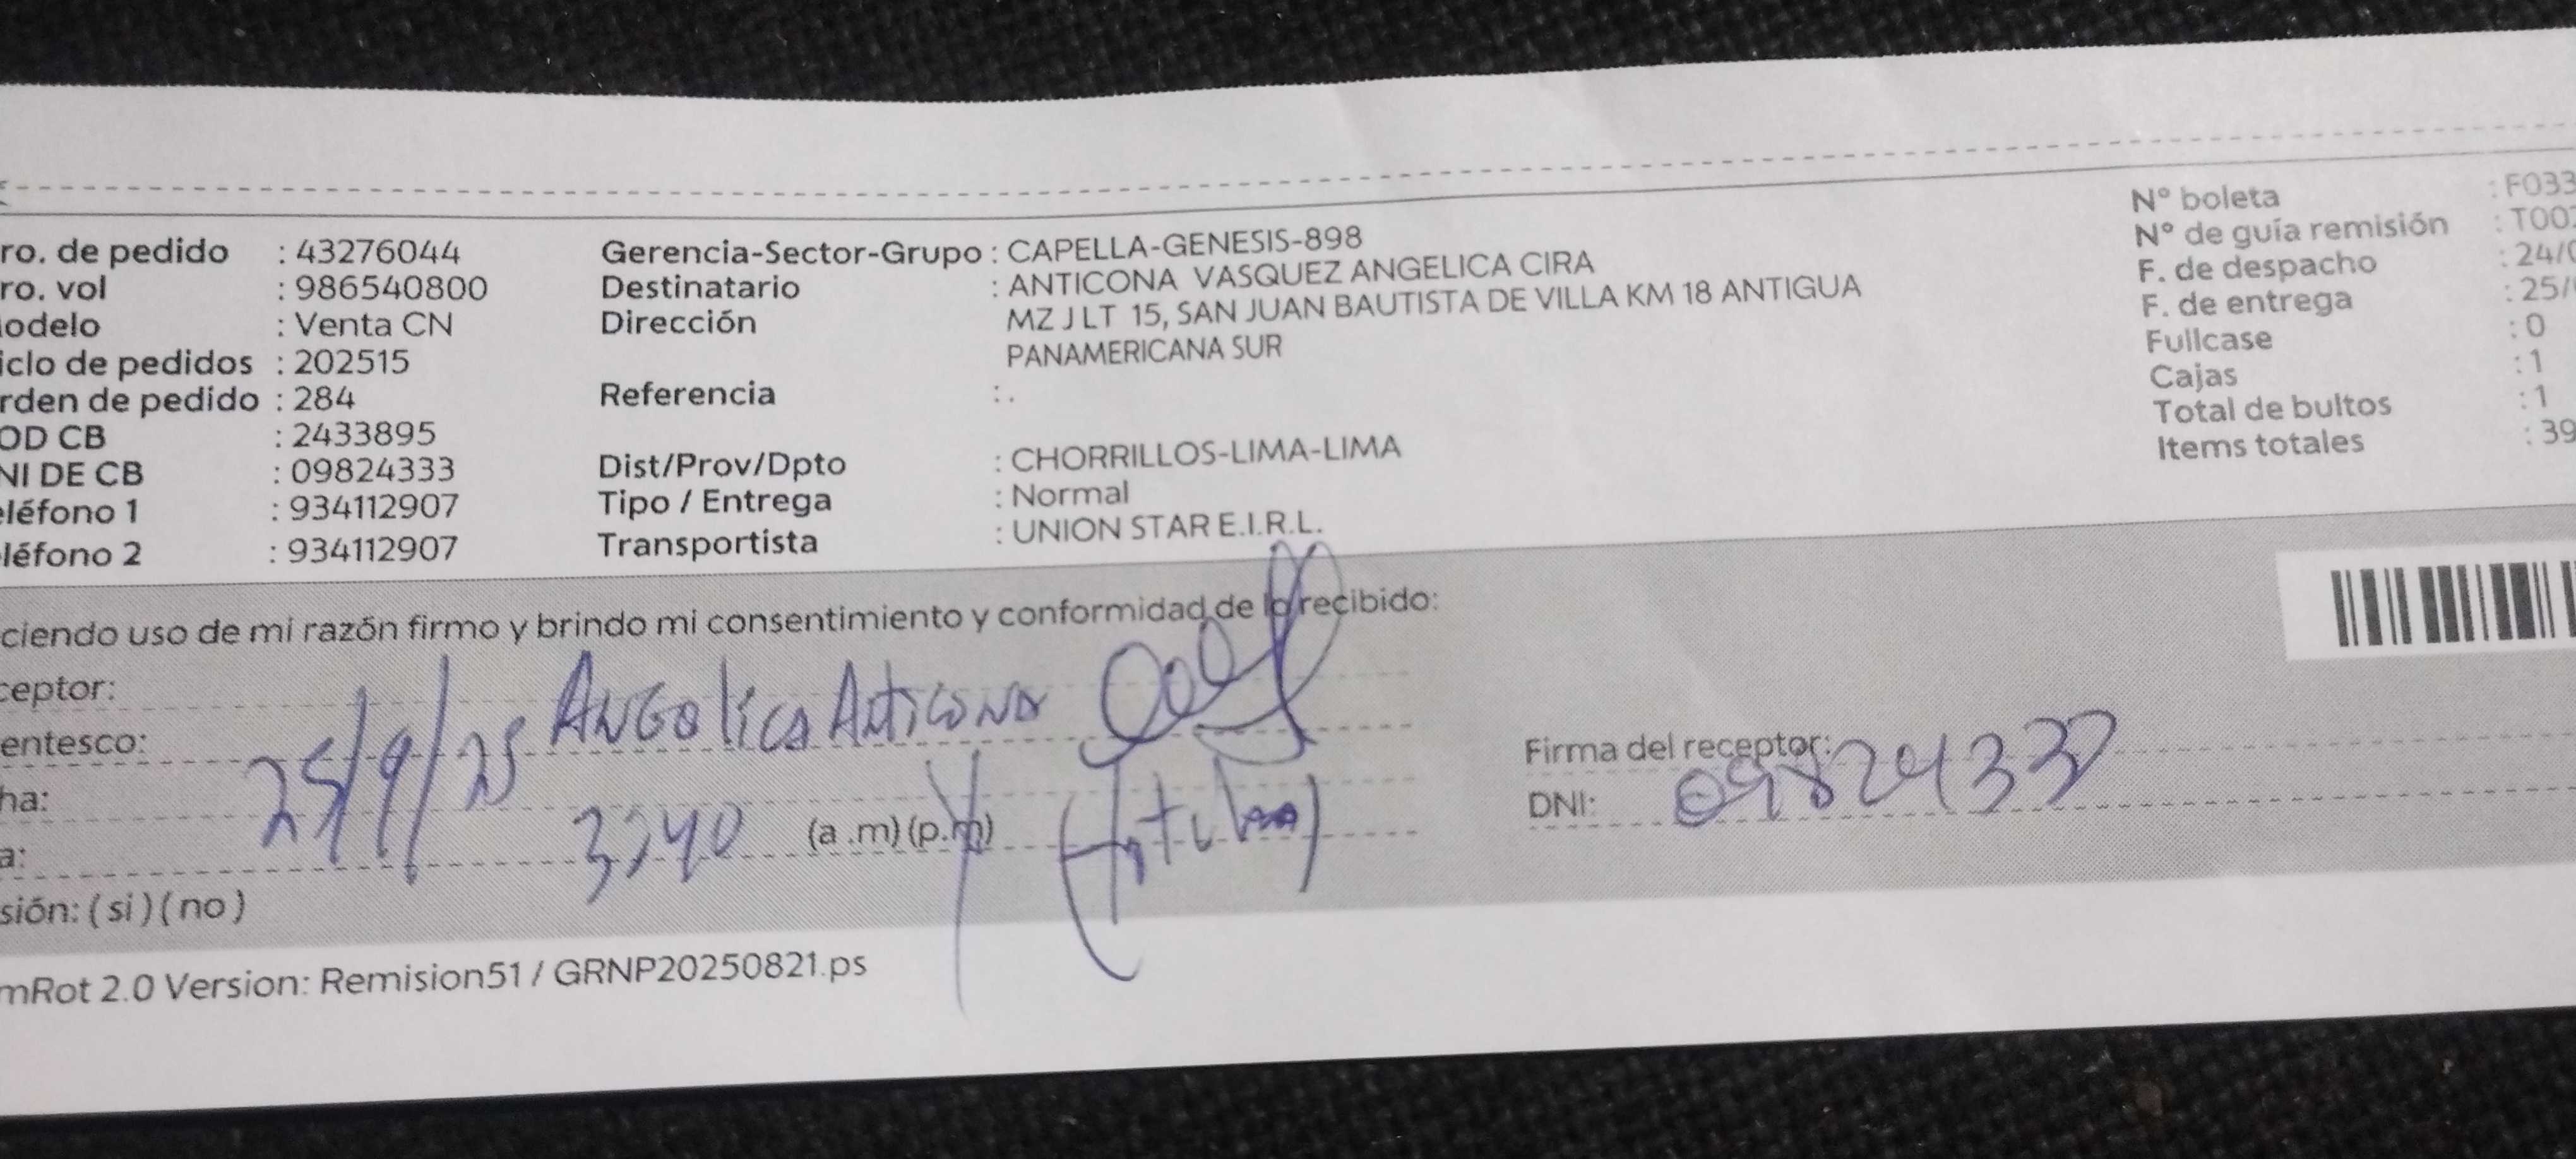 ro. de pedido : 43276044
ro. vol : 986540800
odelo : Venta CN
iclo de pedidos : 202515
rden de pedido : 284
OD CB : 2433895
NI DE CB : 09824333
eléfono 1 : 934112907
léfono 2 : 934112907
Gerencia-Sector-Grupo : CAPELLA-GENESIS-898
Destinatario : ANTICONA VASQUEZ ANGELICA CIRA
Dirección : MZ J LT 15, SAN JUAN BAUTISTA DE VILLA KM 18 ANTIGUA
PANAMERICANA SUR
Referencia : .
Dist/Prov/Dpto : CHORRILLOS-LIMA-LIMA
Tipo / Entrega : Normal
Transportista : UNION STAR E.I.R.L.
Nº boleta : F033
Nº de guía remisión : T002
F. de despacho : 24/0
F. de entrega : 25/
Fullcase : 0
Cajas : 1
Total de bultos : 1
Items totales : 39
ciendo uso de mi razón firmo y brindo mi consentimiento y conformidad de lo recibido:
ceptor: Angelica Anticona
entesco:
ha: 25/9/25
a: 3:40 (a .m) (p.m) (titular)
sión: ( si ) ( no )
Firma del receptor:
DNI: 09824333
mRot 2.0 Version: Remision51 / GRNP20250821.ps